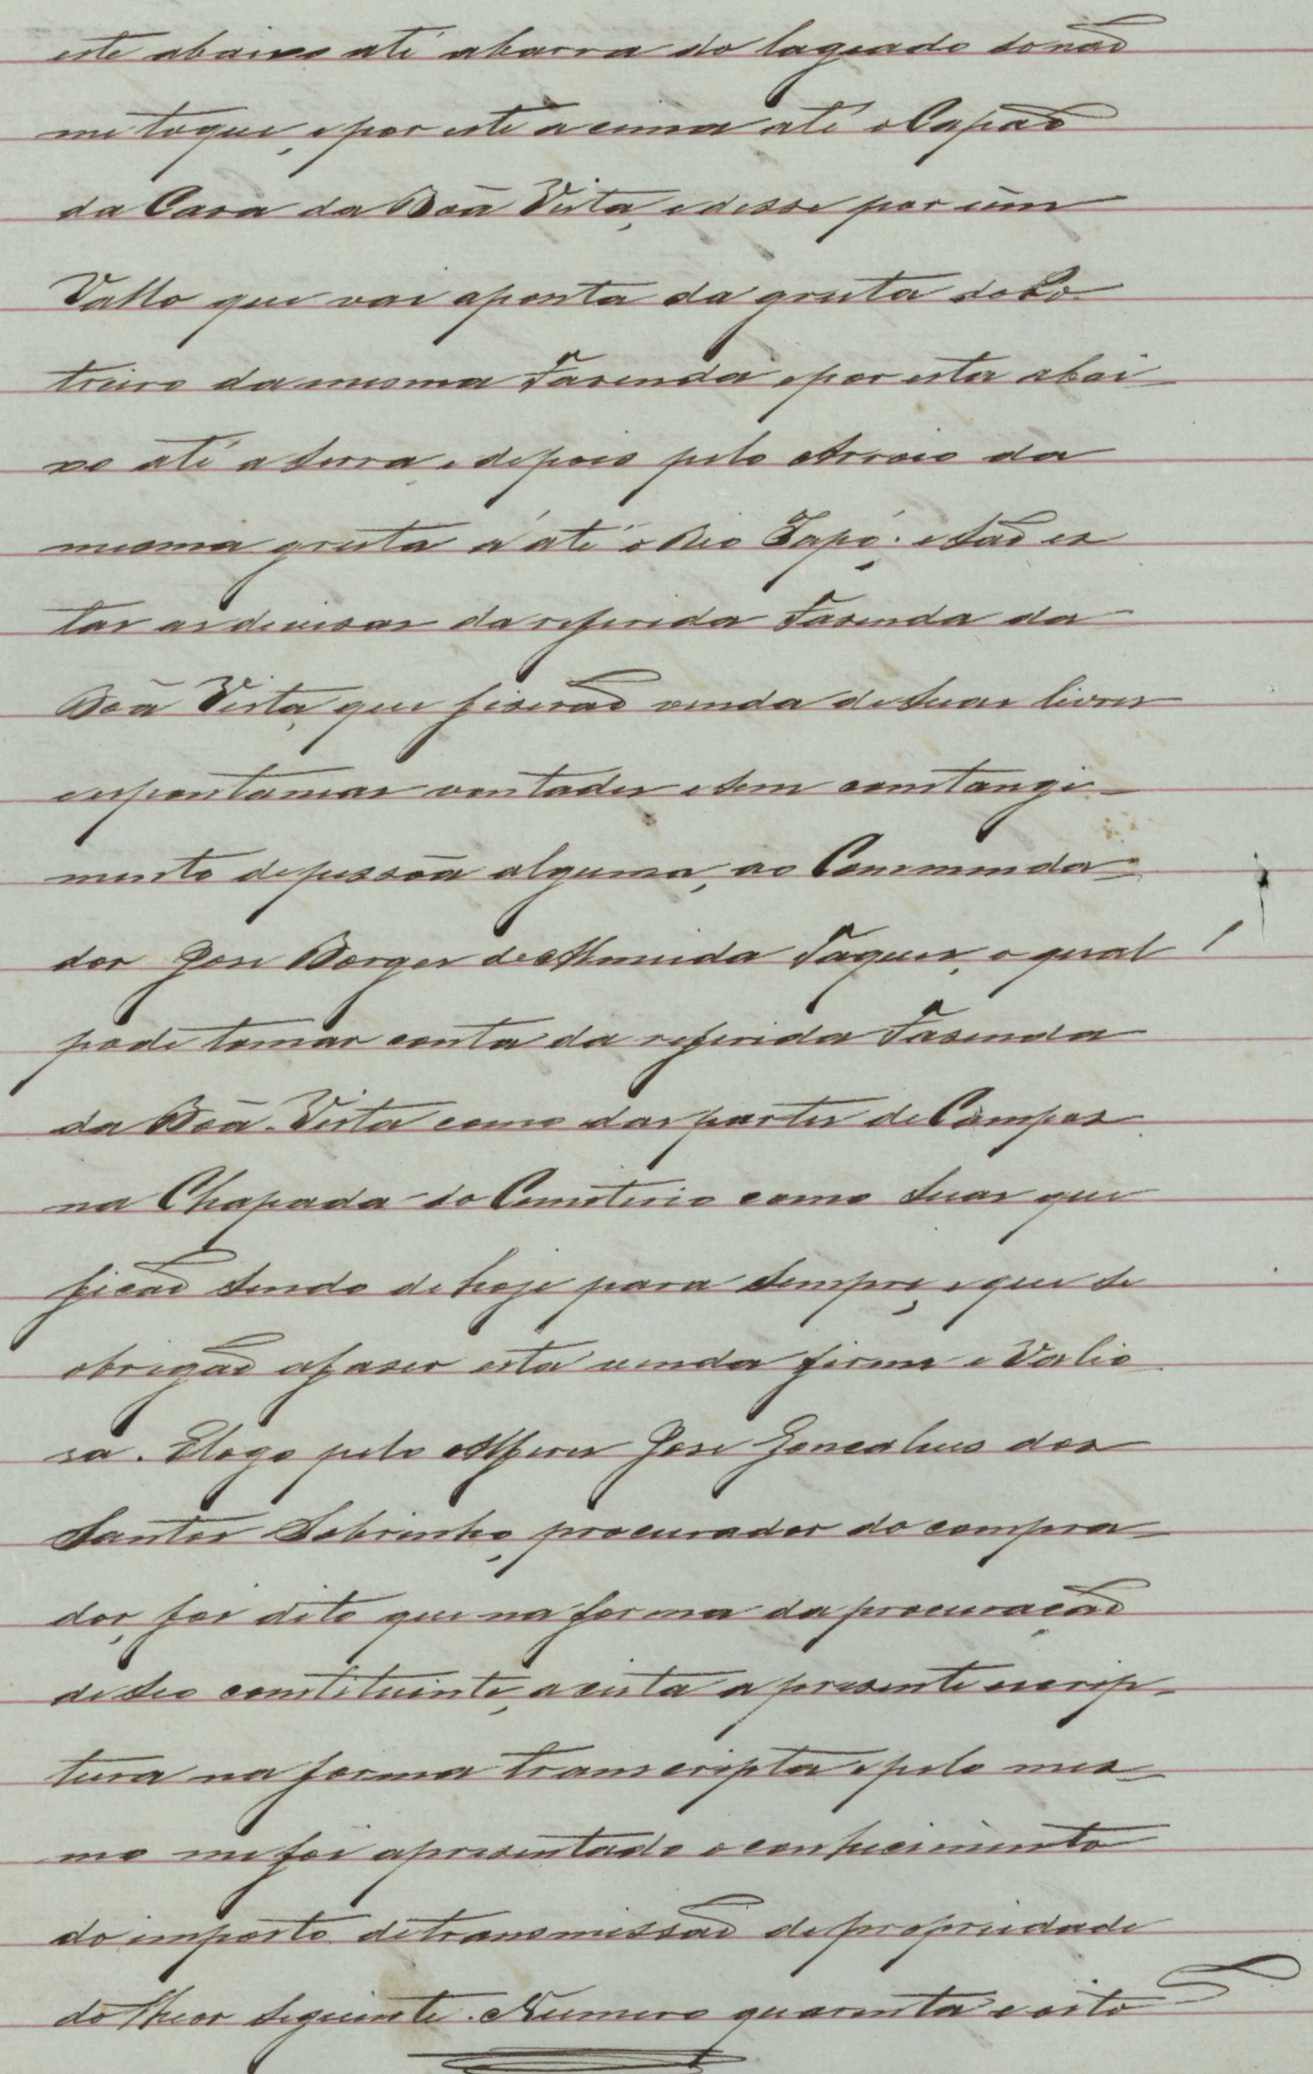 este abaixo até abarra do lageado donaõ
me toque, epor este acima até oCapaõ
da Casa da Bôa Vista, edesse por um
Vallo que vai aponta da gruta doPo
treiro da mesma Fasenda epor esta abai-
xo até a serra, edepois pelo Arroio da
mesma gruta á até o Rio Iapó; eSaõ es
tas as devisas da referida Fasenda da
Bôa Vista, que fiseraõ venda deSuas livres
eespontaneas vontades eSem constangi-
mento depessôa alguma, ao Commenda-
dor Jose Borges deAlmeida Taques, o qual
pode tomar conta da referida Fasenda
da Bôa Vista como das partes deCampos
na Chapada do Cemiterio como Suas que
ficaõ Sendo dehoje para Sempre, eque Se
obrigaõ afaser esta venda firme eValio
sa. Elogo pelo Alferes Jose Goncalves dos
Santos Sobrinho, procurador do compra-
dor, foi dito que na forma da procuraçaõ
deSeo constituinte, aceita apresente escrip-
tura na forma transcripta epelo mes-
mo mefoi apresentado oconhecimento
do imposto detransmissaõ depropriedade
do theor Seguinte. Numero quarenta eoito